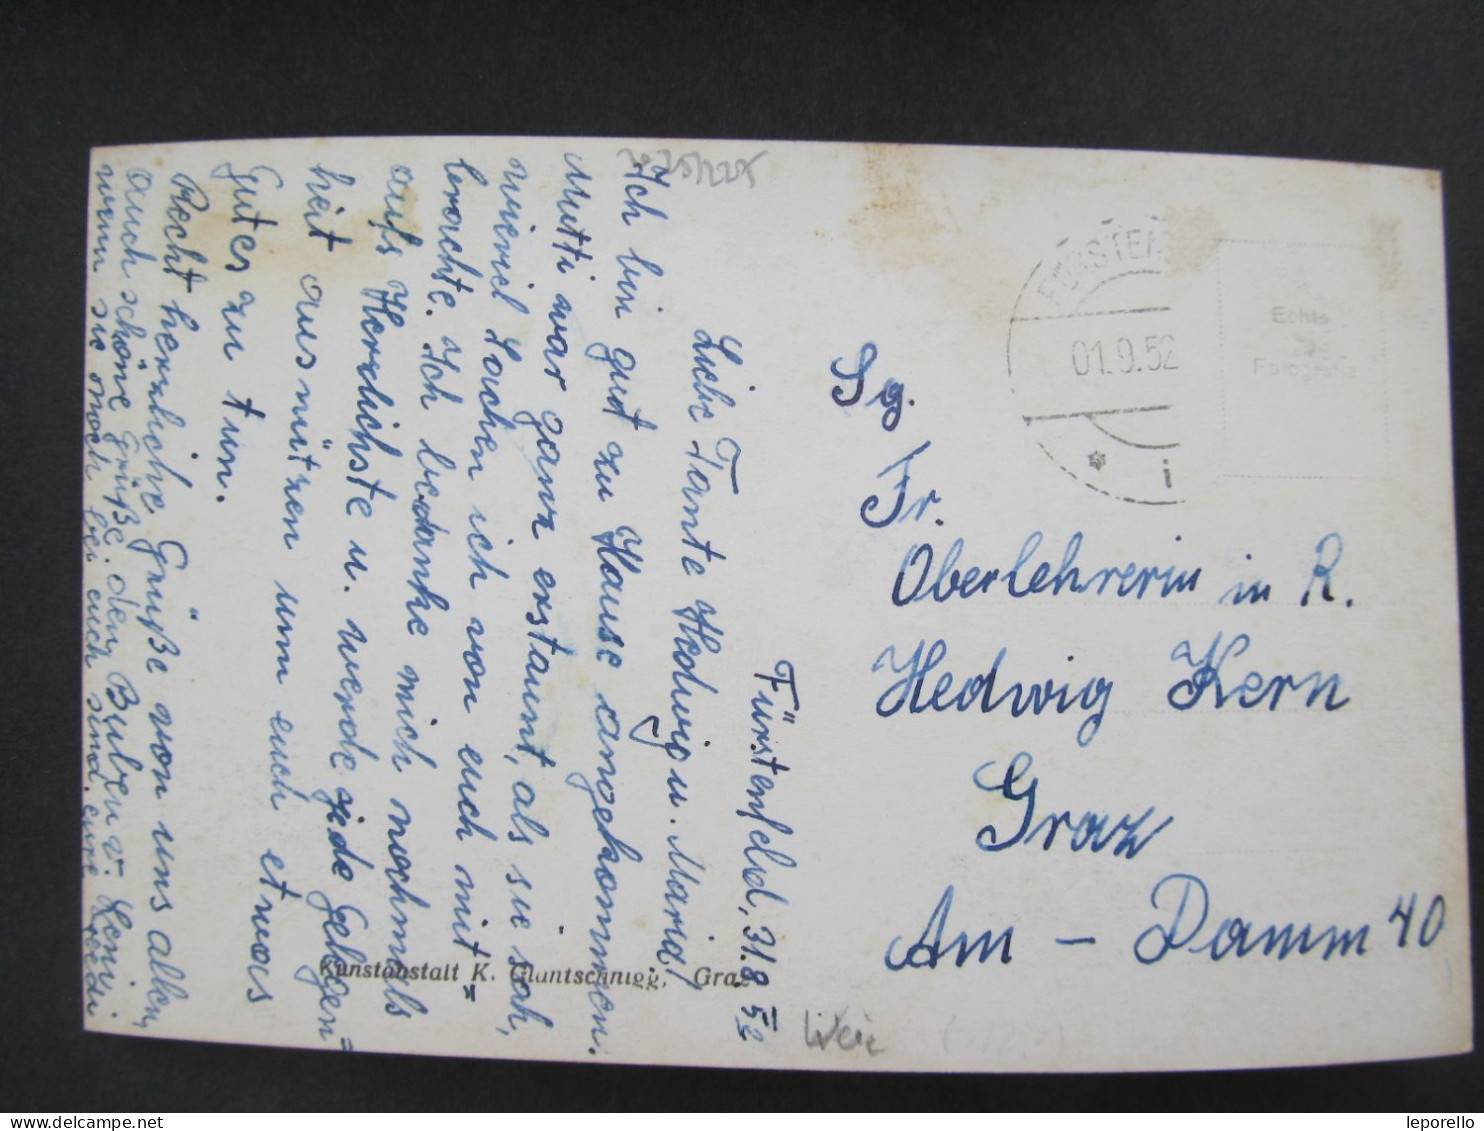 Fürstenfeld, 31.8 52
Liebe Tante Hedwig u. Maria!
Ich bin gut zu Hause angekommen.
Mutti war ganz erstaunt, als sie sah,
wieviel Sachen ich von euch mit=
brachte. Ich bedanke mich nochmals
aufs Herzlichste u. werde jede Gelegen=
heit ausnützen um euch etwas
Gutes zu tun.
Recht herzliche Grüße von uns allen,
auch schöne Grüße den Buben v.
wenn sie noch bei euch sind. eure
Kunstanstalt K. Glantschnigg, Graz
FÜRSTEN
01.9.52
i
Echte
Fotografie
Sg.
Fr.
Oberlehrerin in R.
Hedwig Kern
Graz
Am - Damm 40
delcampe.net
leporello